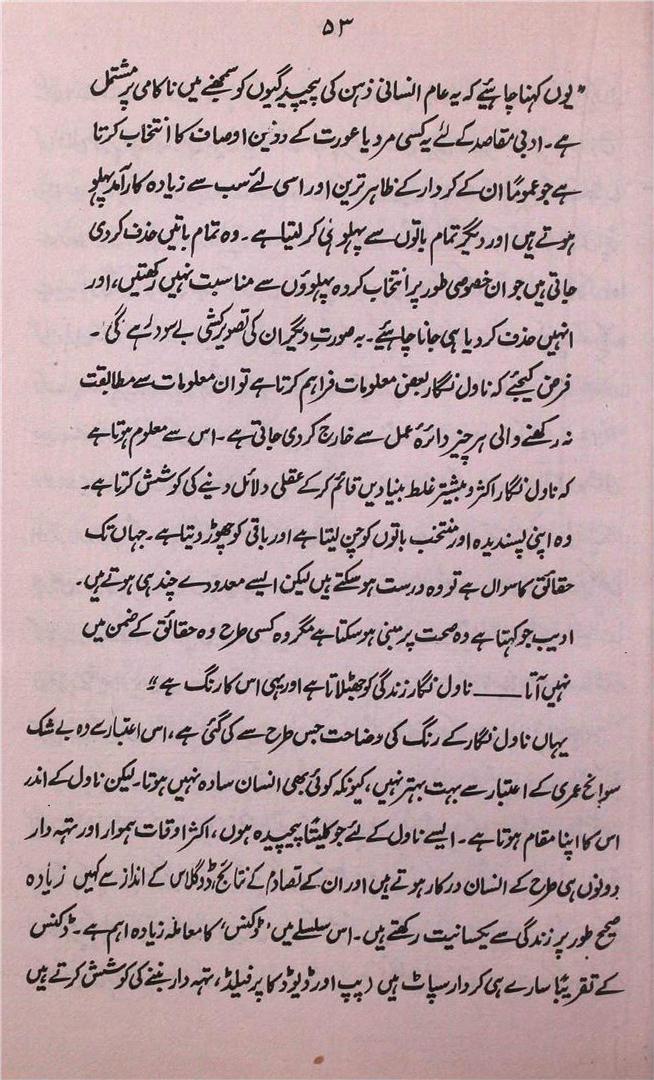 ۵۳
"یوں کہنا چاہئیے کہ یہ عام انسانی ذہن کی پیچیدگیوں کو سمجھنے میں ناکامی پر مشتمل
ہے۔ ادبی مقاصد کے لئے یہ کسی مرد یا عورت کے دو تین اوصاف کا انتخاب کرتا
ہے جو عموماً ان کے کردار کے ظاہر ترین اور اسی لئے سب سے زیادہ کارآمد پہلو
ہوتے ہیں اور دیگر تمام باتوں سے پہلو تہی کر لیتا ہے۔ وہ تمام باتیں حذف کر دی
جاتی ہیں جو ان خصوصی طور پر انتخاب کردہ پہلوؤں سے مناسبت نہیں رکھتیں، اور
انہیں حذف کر دیا ہی جانا چاہئیے۔ بہ صورتِ دیگر ان کی تصویر کشی بے سود رہے گی۔
فرض کیجئے کہ ناول نگار بعض معلومات فراہم کرتا ہے تو ان معلومات سے مطابقت
نہ رکھنے والی ہر چیز دائرۂ عمل سے خارج کر دی جاتی ہے۔ اس سے معلوم ہوتا ہے
کہ ناول نگار اکثر و بیشتر غلط بنیادیں قائم کرکے عقلی دلائل دینے کی کوشش کرتا ہے۔
وہ اپنی پسندیدہ اور منتخب باتوں کو چن لیتا ہے اور باقی کو چھوڑ دیتا ہے۔ جہاں تک
حقائق کا سوال ہے تو وہ درست ہو سکتے ہیں لیکن ایسے معدودے چند ہی ہوتے ہیں۔
ادیب جو کہتا ہے وہ صحت پر مبنی ہو سکتا ہے مگر وہ کسی طرح وہ حقائق کے ضمن میں
نہیں آتا ــــــ ناول نگار زندگی کو جھٹلاتا ہے اور یہی اس کا رنگ ہے"
یہاں ناول نگار کے رنگ کی وضاحت جس طرح سے کی گئی ہے، اس اعتبار سے وہ بے شک
سوانح عمری کے اعتبار سے بہت بہتر نہیں، کیونکہ کوئی بھی انسان سادہ نہیں ہوتا۔ لیکن ناول کے اندر
اس کا اپنا مقام ہوتا ہے۔ ایسے ناول کے لئے جو کلیتاً پیچیدہ ہوں، اکثر اوقات ہموار اور تہہ دار
دونوں ہی طرح کے انسان درکار ہوتے ہیں اور ان کے تصادم کے نتائج، ڈگلاس کے انداز سے کہیں زیادہ
صحیح طور پر زندگی سے یکسانیت رکھتے ہیں۔ اس سلسلے میں 'ڈکنس' کا معاملہ زیادہ اہم ہے۔ ڈکنس
کے تقریباً سارے ہی کردار سپاٹ ہیں (پپ اور ڈیوڈ کاپرفیلڈ، تہہ دار بننے کی کوشش کرتے ہیں